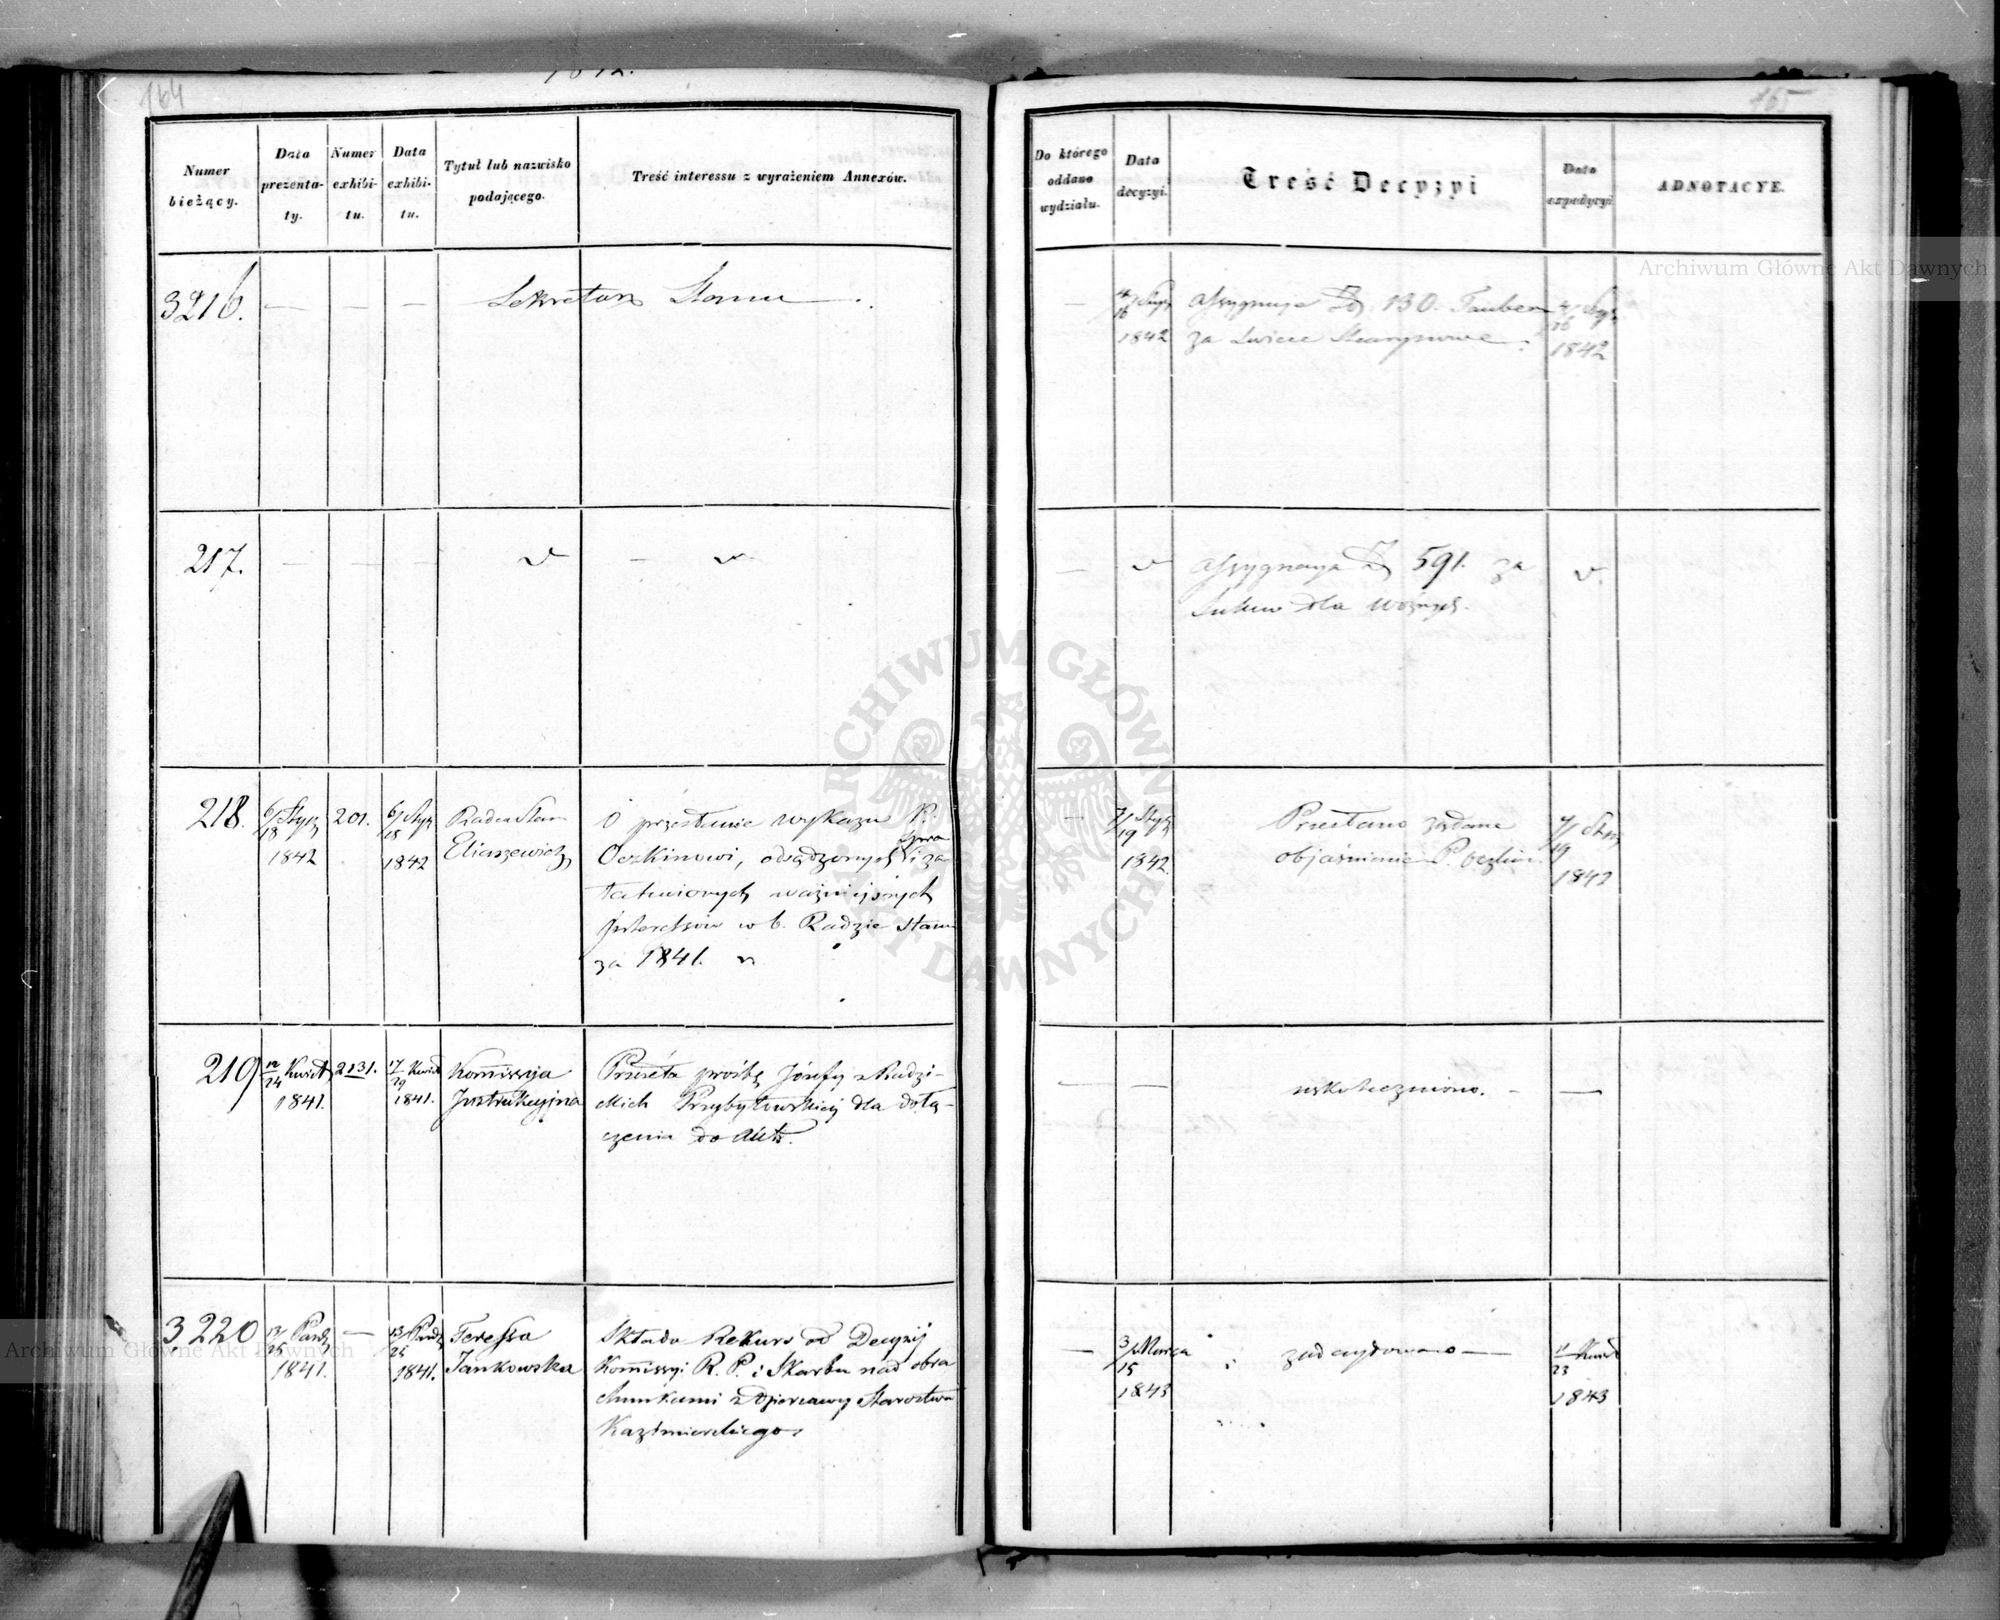 164
1842.
165
Numer bieżący.
Data prezenta- ty.
Numer exhibi- tu.
Data exhibi- tu.
Tytuł lub nazwisko podającego.
Treść interessu z wyrażeniem Annexów.
Do którego oddano wydziału.
Data decyzyi.
Treść Decyzyi
Data expedycyi
ADNOTACYE.
3216. — — — Sekretarz Stanu — — 4/16 Stycz 1842
assygnuje Zł 130.
za świece Stearynowe 4/16 Stycz 1842
217. — — — v — v — v
assygnuje Zł 591. za
sukno dla woźnych. v.
218. 6/18 Stycz 1842 201. 6/18 Stycz 1842
Radca Stanu
Eliaszewicz
O przesłanie wykazu P.
Oczkinowi, odsądzonych spraw i za-
łatwionych ważniejszych
Interessów w b. Radzie Stanu
za 1841. r.
— 7/19 Stycz 1842
Przesłano żądane
objaśnienie P.
7/19 Stycz 1842
219 12/24 Kwiet 1841. 2131. 17/29 Kwiet 1841.
Kommissya
Instrukcyjna
Przesyła prośbę Józefy z Radzi-
ckich Przybyłowskiej dla dołą-
czenia do Akt.
— — uskuteczniono. — —
3220 13/25 Paźdz 1841. — 13/25 Paźdz 1841.
Teressa
Jankowska
Składa Rekurs od Decyzji
Kommissyi R. P. i Skarbu nad obra
chunkami z Dzierżawy Starostwa
Kazimierskiego
— 3/15 Marca 1843
zadecydowano — 11/23 Kwiet 1843
Archiwum Główne Akt Dawnych
ARCHIWUM GŁÓWNE AKT DAWNYCH
Archiwum Główne Akt Dawnych